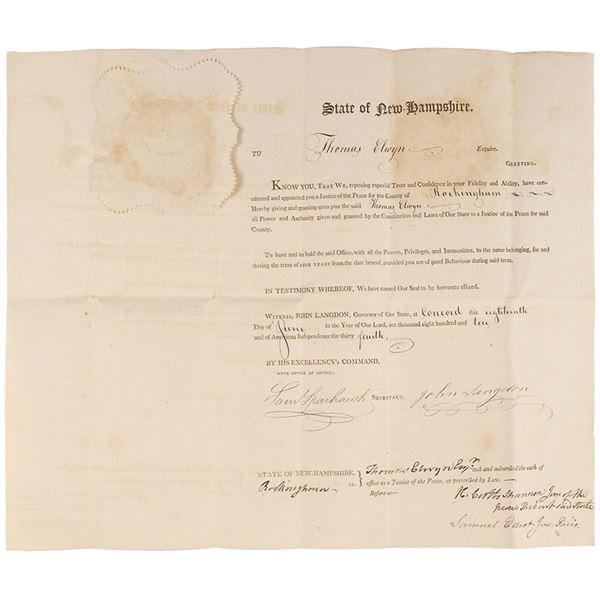 State of New-Hampshire.
TO Thomas Elwyn Esquire.
GREETING.
KNOW YOU, THAT WE, reposing especial Trust and Confidence in your Fidelity and Ability, have con-
stituted and appointed you a Justice of the Peace for the County of Rockingham
Hereby giving and granting unto you the said Thomas Elwyn
all Power and Authority given and granted by the Constitution and Laws of Our State to a Justice of the Peace for said
County.
To have and to hold the said Office, with all the Powers, Privileges, and Immunities, to the same belonging, for and
during the term of FIVE YEARS from the date hereof, provided you are of good Behaviour during said term.
IN TESTIMONY WHEREOF, We have caused Our Seal to be hereunto affixed.
WITNESS, JOHN LANGDON, Governor of Our State, at Concord this eighteenth
Day of June in the Year of Our Lord, one thousand eight hundred and ten
and of American Independence the thirty fourth
BY HIS EXCELLENCY'S COMMAND,
WITH ADVICE OF COUNCIL.
Saml Sparhawk SECRETARY. John Langdon
STATE OF NEW-HAMPSHIRE. Thomas Elwyn Esqr. took and subscribed the oath of
Rockingham ss. office as a Justice of the Peace, as prescribed by Law.
Before us
R. Cutts Shannon Jus of the
peace
Samuel Elliot Jus. Pacis.